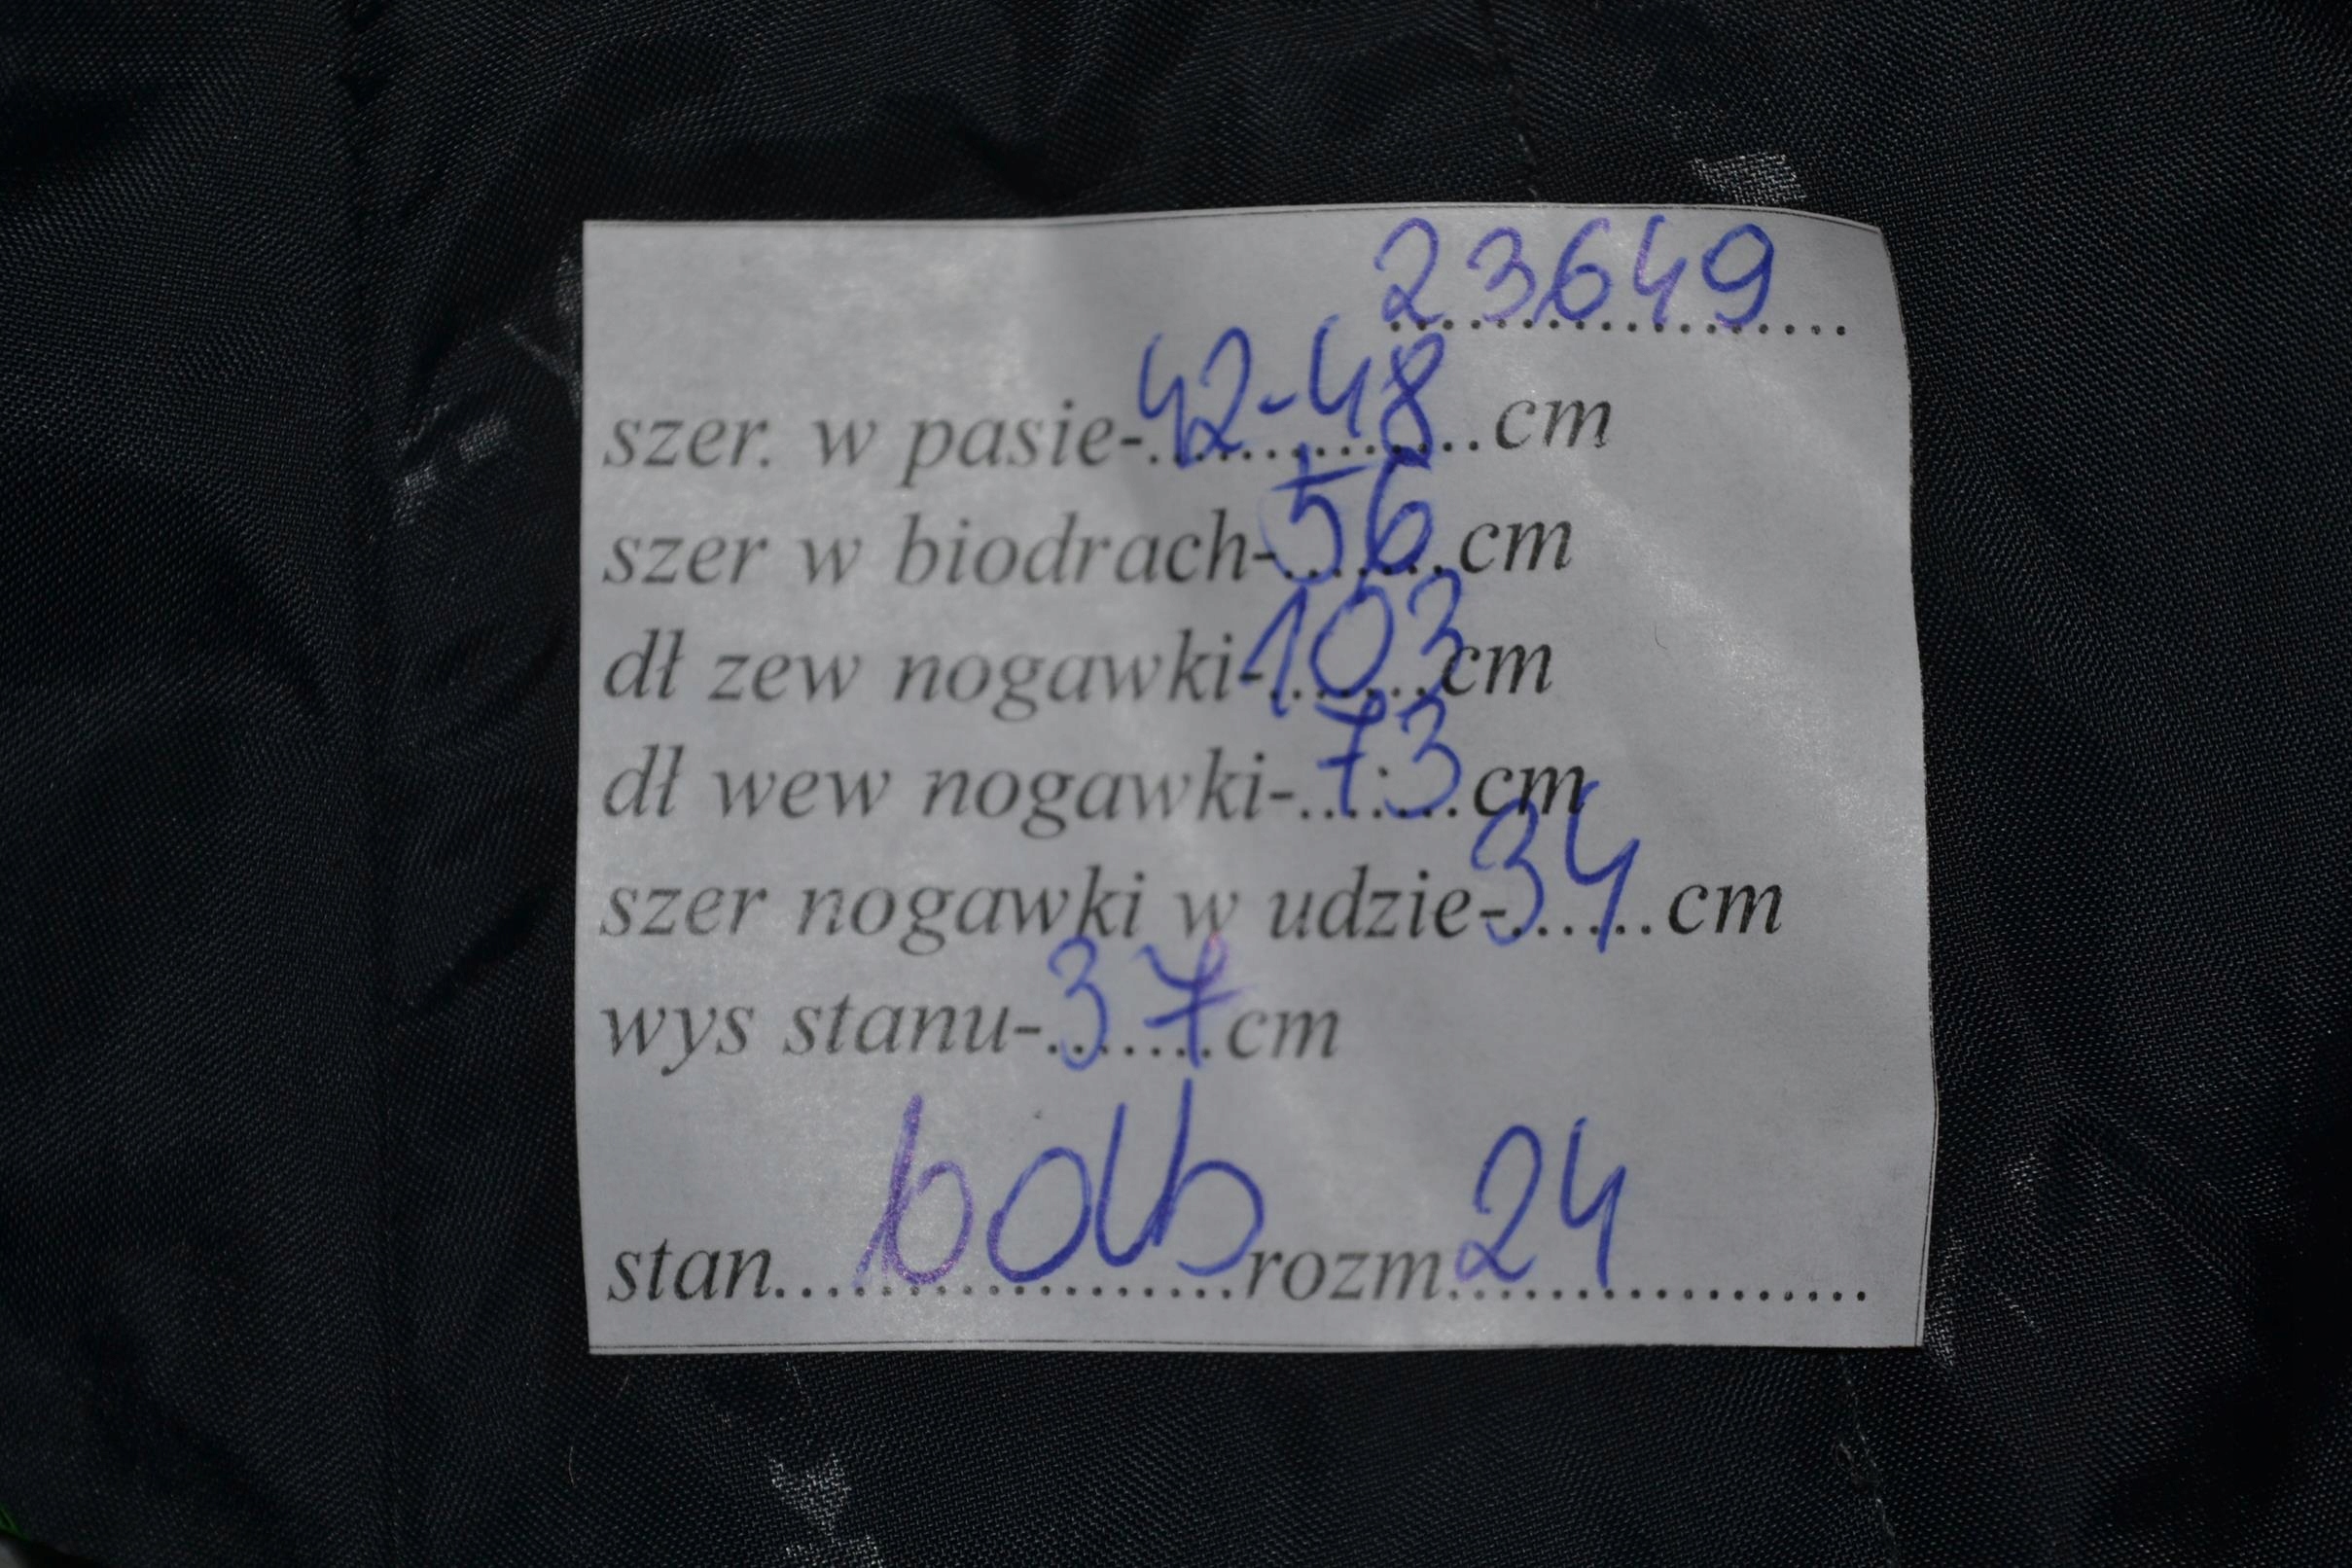 23649
szer. w pasie-42-48 cm
szer w biodrach-56 cm
dł zew nogawki-103 cm
dł wew nogawki-73 cm
szer nogawki w udzie-34 cm
wys stanu-37 cm
stan rozm 24